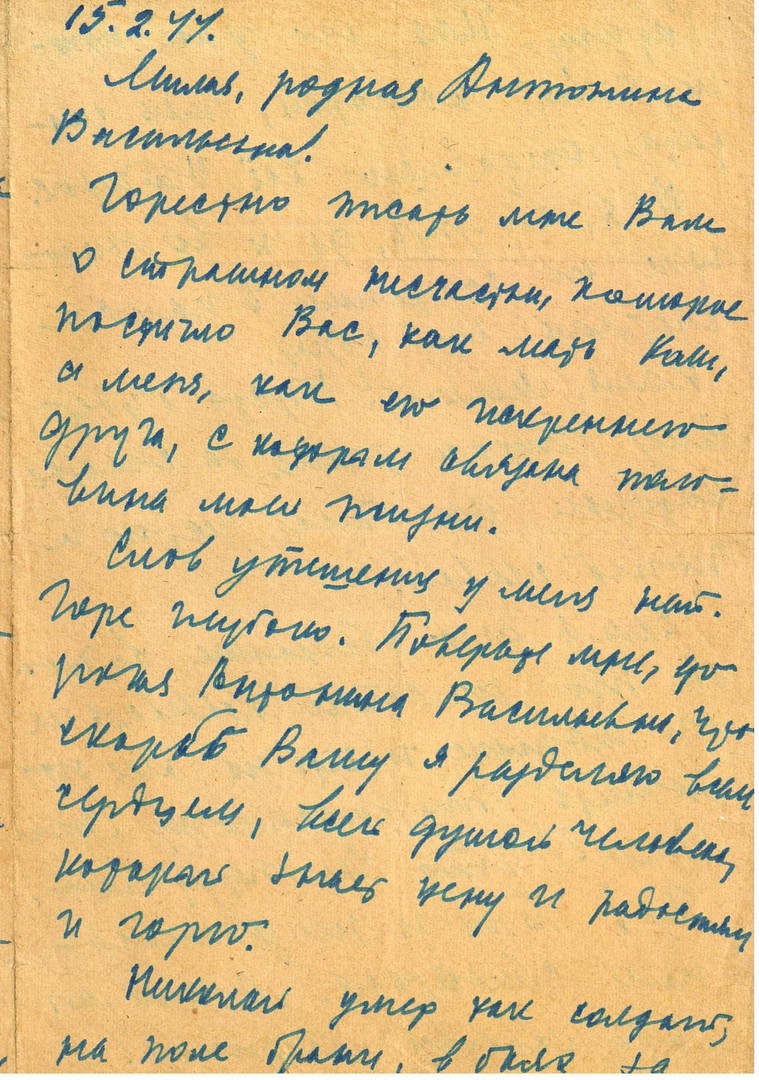 15.2.44.
Милая, родная Антонина
Васильевна!
Горестно писать мне Вам
о страшном несчастьи, которое
постигло Вас, как мать Коли,
а меня, как его искреннего
друга, с которым связана поло-
вина моей жизни.
Слов утешения у меня нет.
Горе глубоко. Поверьте мне, до
рогая Антонина Васильевна, что
скорбь Вашу я разделяю всем
сердцем, всей душой человека,
который знает цену и радостям
и горю.
Николай умер как солдат,
на поле брани, в боях за